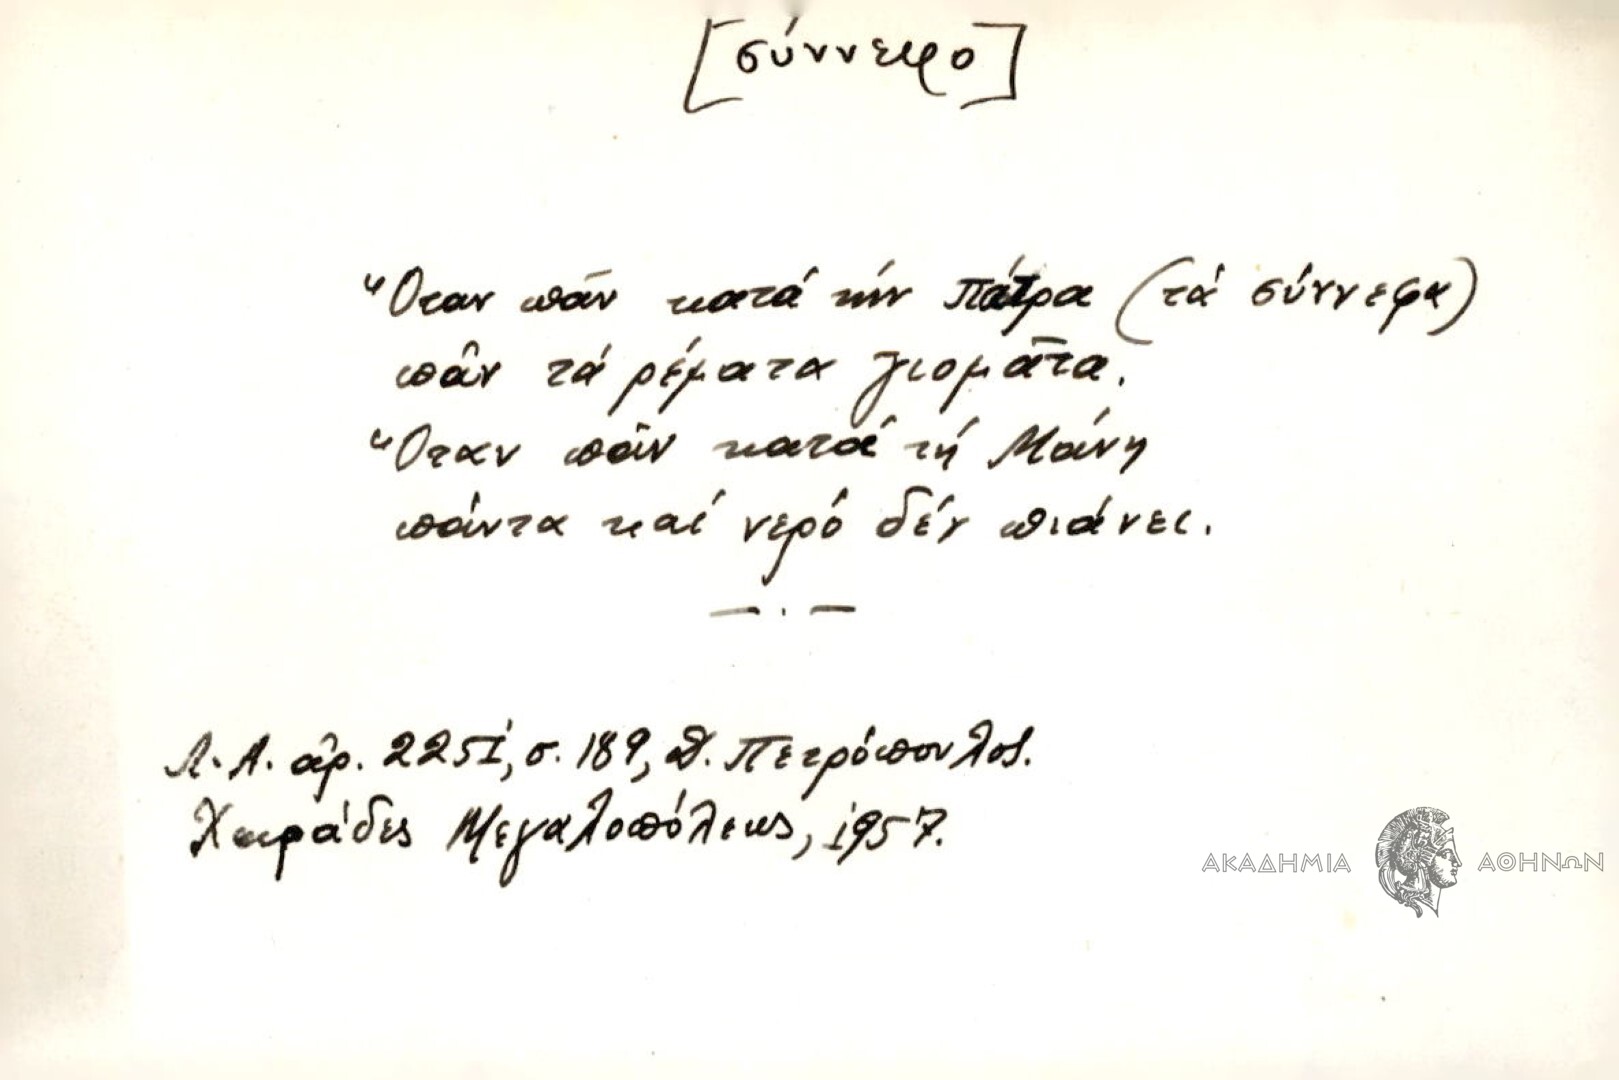 [σύννεφο]
Ὅταν πᾶν κατά τήν Πάτρα (τά σύννεφα)
πᾶν τά ρέματα γιομᾶτα.
Ὅταν πᾶν κατά τή Μάνη
πάντα καί νερό δέν πιάνει.
— . —
Λ. Α. ἀρ. 2251, σ. 189, Δ. Πετρόπουλος.
Χωράδες Μεγαλοπόλεως, 1957.
ΑΚΑΔΗΜΙΑ ΑΘΗΝΩΝ